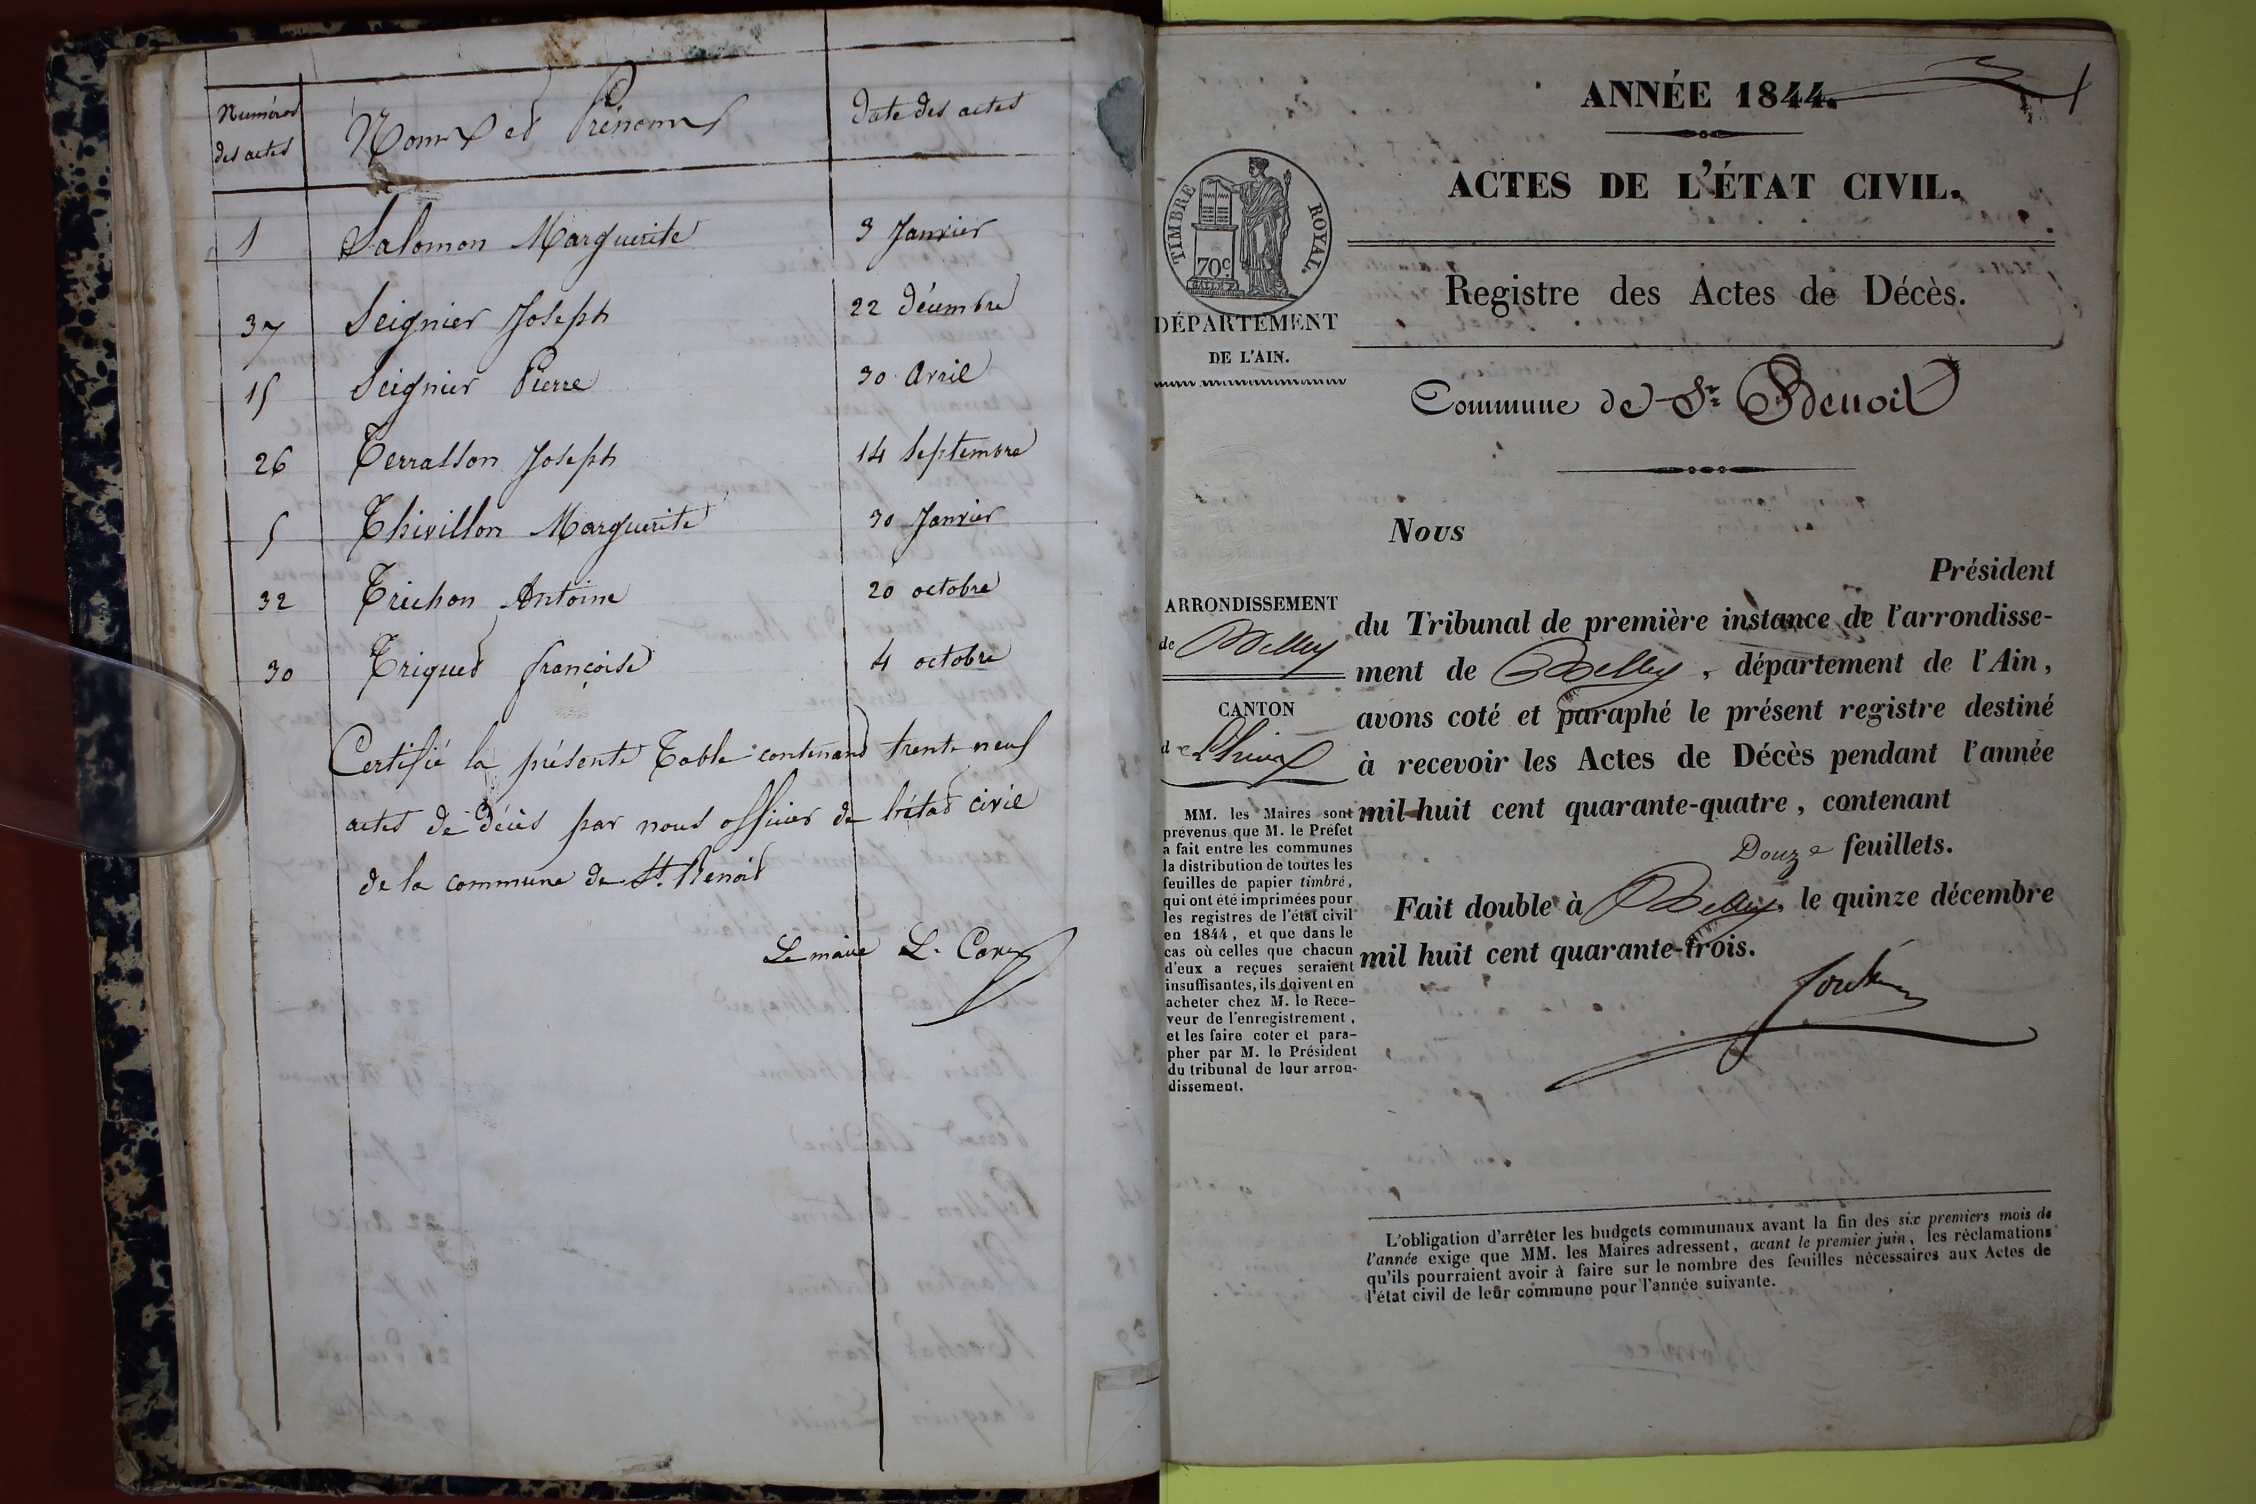 Numéros des actes
Noms et Prénoms
date des actes
1 Salomon Marguerite 3 Janvier
37 Seignier Joseph 22 décembre
15 Seignier Pierre 30 Avril
26 Terrasson Joseph 14 Septembre
5 Thivillon Marguerite 30 Janvier
32 Trichon Antoine 20 octobre
30 Triquet françoise 4 octobre
Certifié la présente Table contenant trente neuf
actes de décès par nous officier de l'état civil
de la commune de St. Benoit
Le maire L. Carey
1
ANNÉE 1844.
ACTES DE L'ÉTAT CIVIL.
TIMBRE ROYAL.
70c.
DÉPARTEMENT
DE L'AIN.
Registre des Actes de Décès.
Commune de St Benoit
Nous
Président
ARRONDISSEMENT
de Belley
CANTON
de Lhuis
du Tribunal de première instance de l'arrondisse-
ment de Belley, département de l'Ain,
avons coté et paraphé le présent registre destiné
à recevoir les Actes de Décès pendant l'année
mil huit cent quarante-quatre, contenant
Douze feuillets.
Fait double à Belley, le quinze décembre
mil huit cent quarante-trois.
MM. les Maires sont
prévenus que M. le Préfet
a fait entre les communes
la distribution de toutes les
feuilles de papier timbré,
qui ont été imprimées pour
les registres de l'état civil
en 1844, et que dans le
cas où celles que chacun
d'eux a reçues seraient
insuffisantes, ils doivent en
acheter chez M. le Rece-
veur de l'enregistrement,
et les faire coter et para-
pher par M. le Président
du tribunal de leur arron-
dissement.
L'obligation d'arrêter les budgets communaux avant la fin des six premiers mois de
l'année exige que MM. les Maires adressent, avant le premier juin, les réclamations
qu'ils pourraient avoir à faire sur le nombre des feuilles nécessaires aux Actes de
l'état civil de leur commune pour l'année suivante.